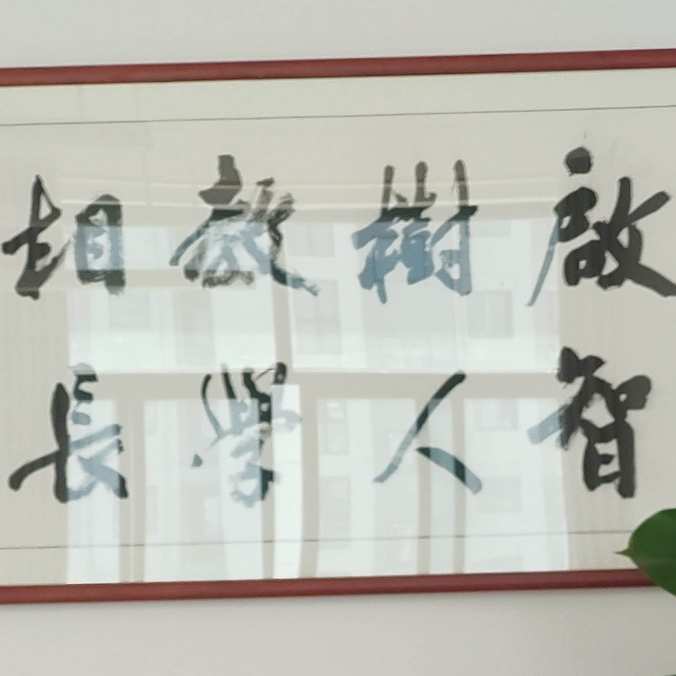 啟智
樹人
教學
相長